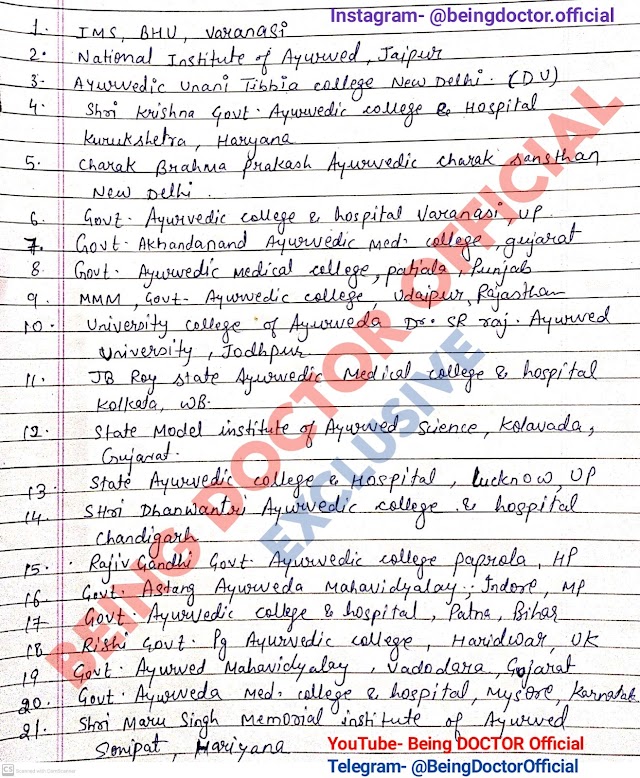 Instagram- @beingdoctor.official
1. IMS, BHU, Varanasi
2. National Institute of Ayurved, Jaipur
3. Ayurvedic Unani Tibbia college New Delhi. (DU)
4. Shri Krishna Govt. Ayurvedic college & Hospital
Kurukshetra, Haryana
5. Charak Brahma prakash Ayurvedic charak sansthan
New Delhi.
6. Govt. Ayurvedic college & hospital Varanasi, UP
7. Govt. Akhandanand Ayurvedic Med. college, gujarat
8. Govt. Ayurvedic Medical college, patiala, Punjab
9. MMM, Govt. Ayurvedic college, Udaipur, Rajasthan
10. University college of Ayurveda Dr. SR raj. Ayurved
University, Jodhpur
11. JB Roy state Ayurvedic Medical college & hospital
Kolkata, WB.
12. State Model institute of Ayurved Science, Kolavada,
Gujarat.
13. State Ayurvedic college & Hospital, lucknow, UP
14. SHri Dhanwantri Ayurvedic college & hospital
Chandigarh
15. Rajiv Gandhi Govt. Ayurvedic college paprola, HP
16. Govt. Astang Ayurveda Mahavidyalay, Indore, MP
17. Govt. Ayurvedic college & hospital, Patna, Bihar
18. Rishi Govt. Pg Ayurvedic college, Haridwar, UK
19 Govt. Ayurved Mahavidyalay, Vadodara, Gujarat
20. Govt. Ayurveda Med. college & hospital, Mysore, Karnatak
21. Shri Maru Singh Memorial institute of Ayurved
Sonipat, Hariyana
BEING DOCTOR OFFICIAL
EXCLUSIVE
YouTube- Being DOCTOR Official
Telegram- @BeingDoctorOfficial
CS Scanned with CamScanner